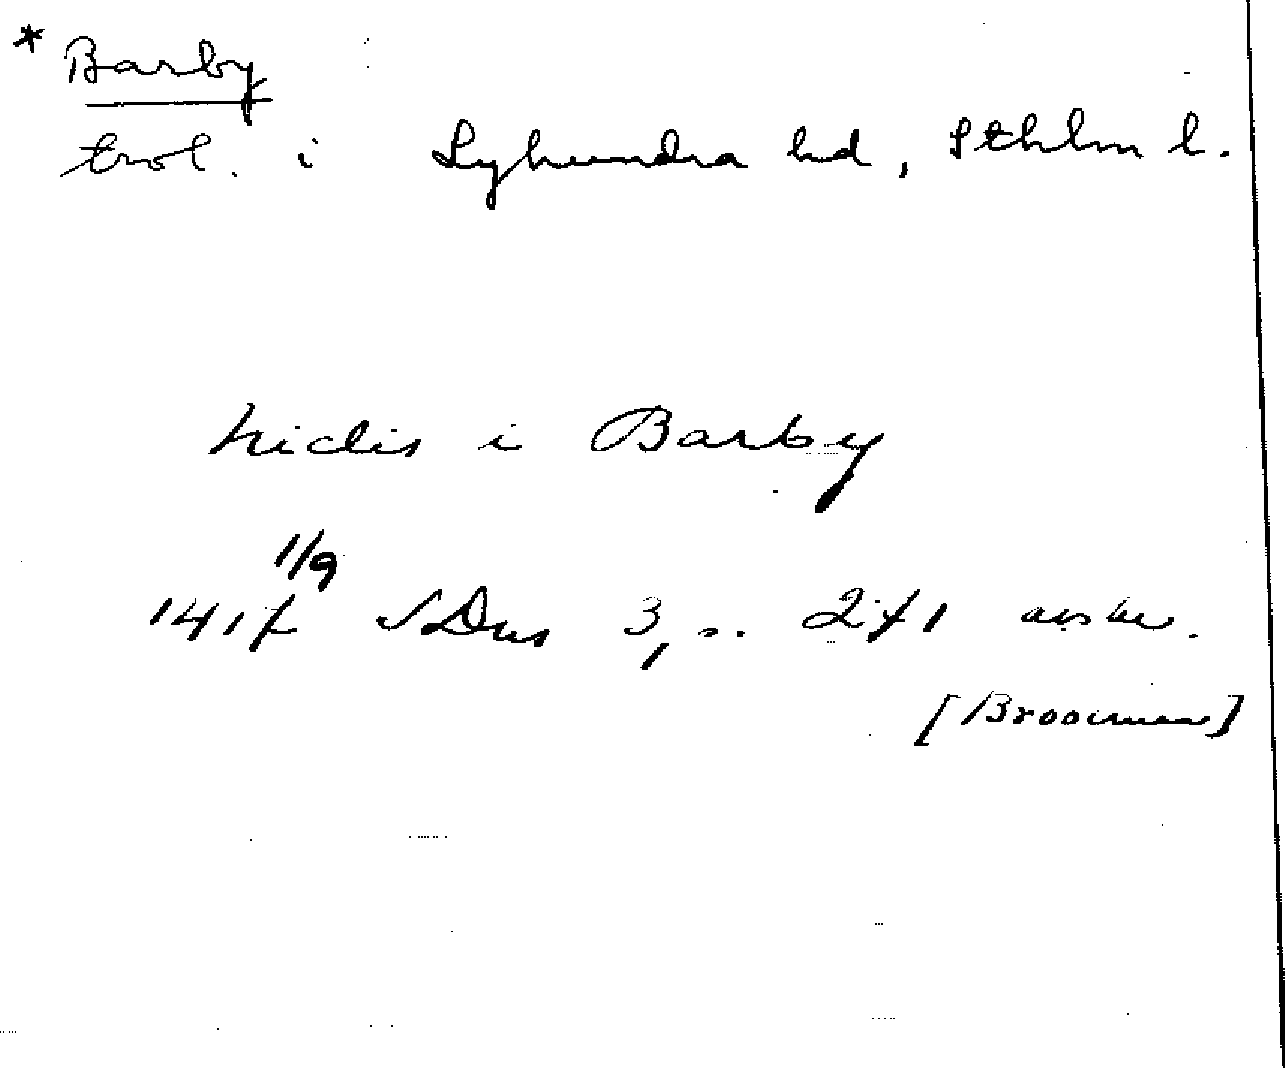 * Barby
trol. i Lyhundra hd, Sthlm l.
nidis i Barby
1/9
1417 SDns 3, s. 271 avskr.
[Broocman]